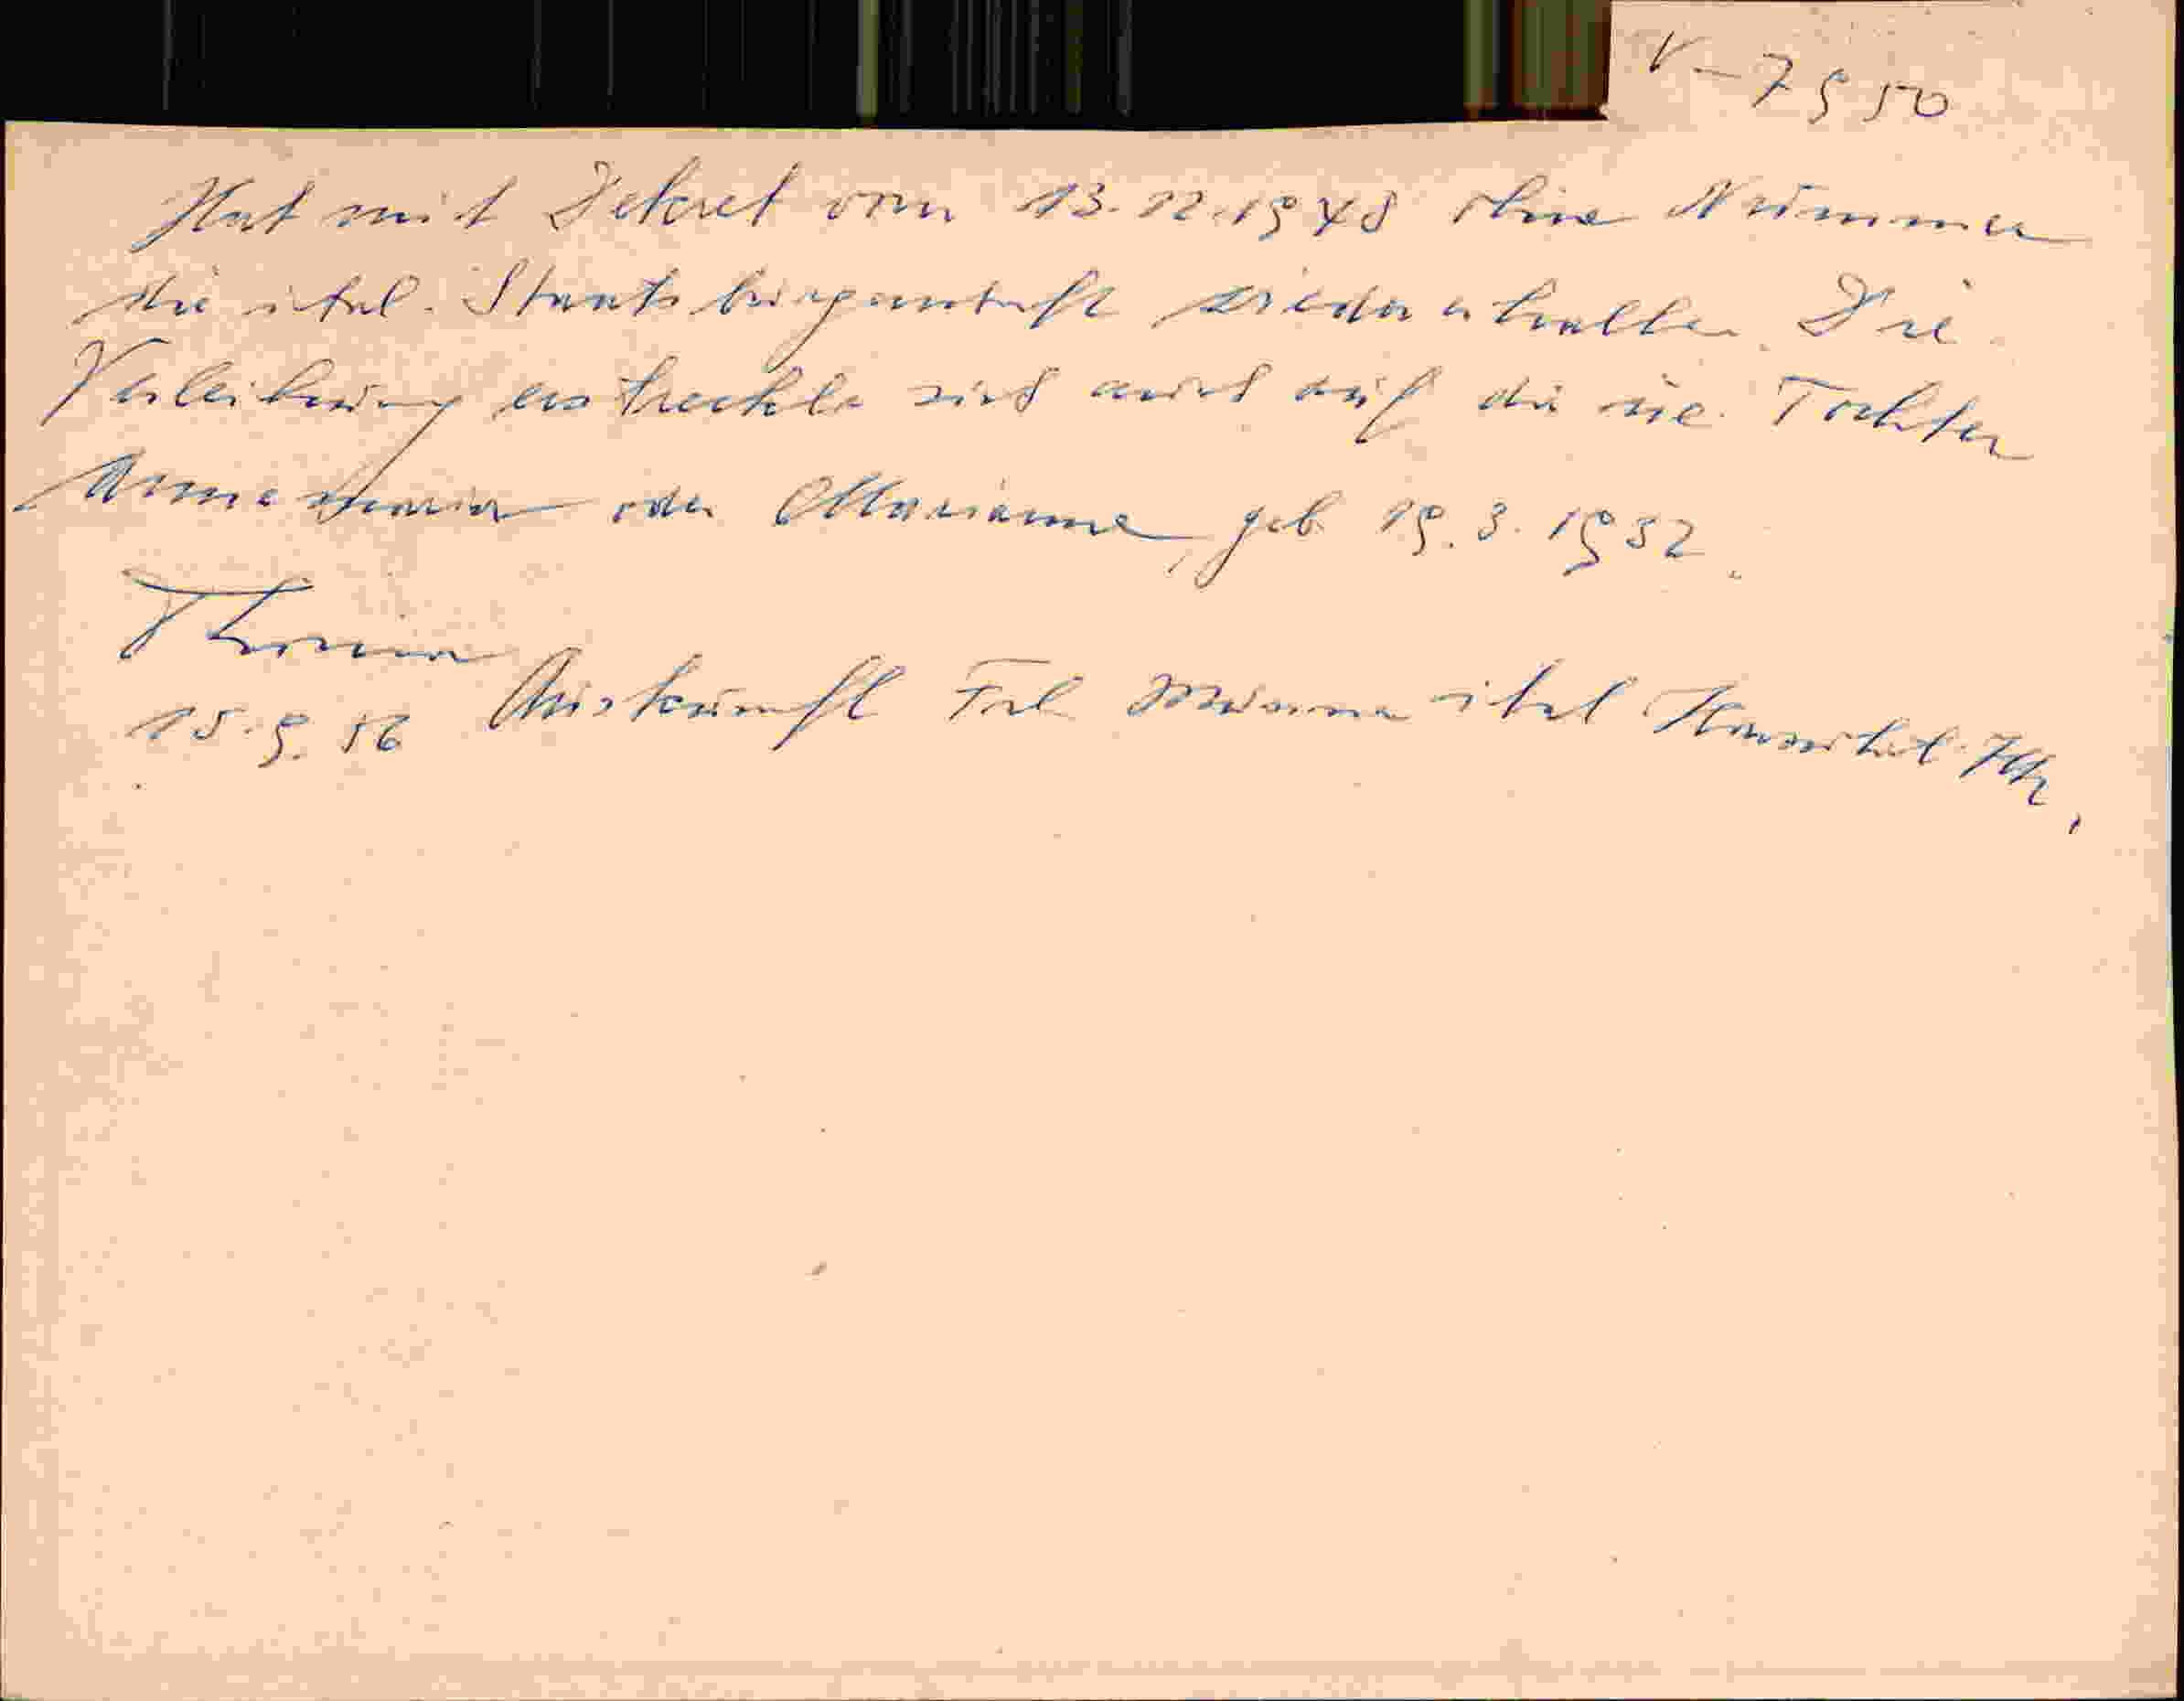 V-7950
Hat mit Dekret vom 13.12.1948 ohne Nummer
die ital. Staatsbürgerschaft wiedererhalten. Die
Verleihung erstreckte sich auch auf die ue. Tochter
Anna Maria oder Marianne, geb. 19.3.1932.
Thoma
15.9.56 Auskunft Frl. ital